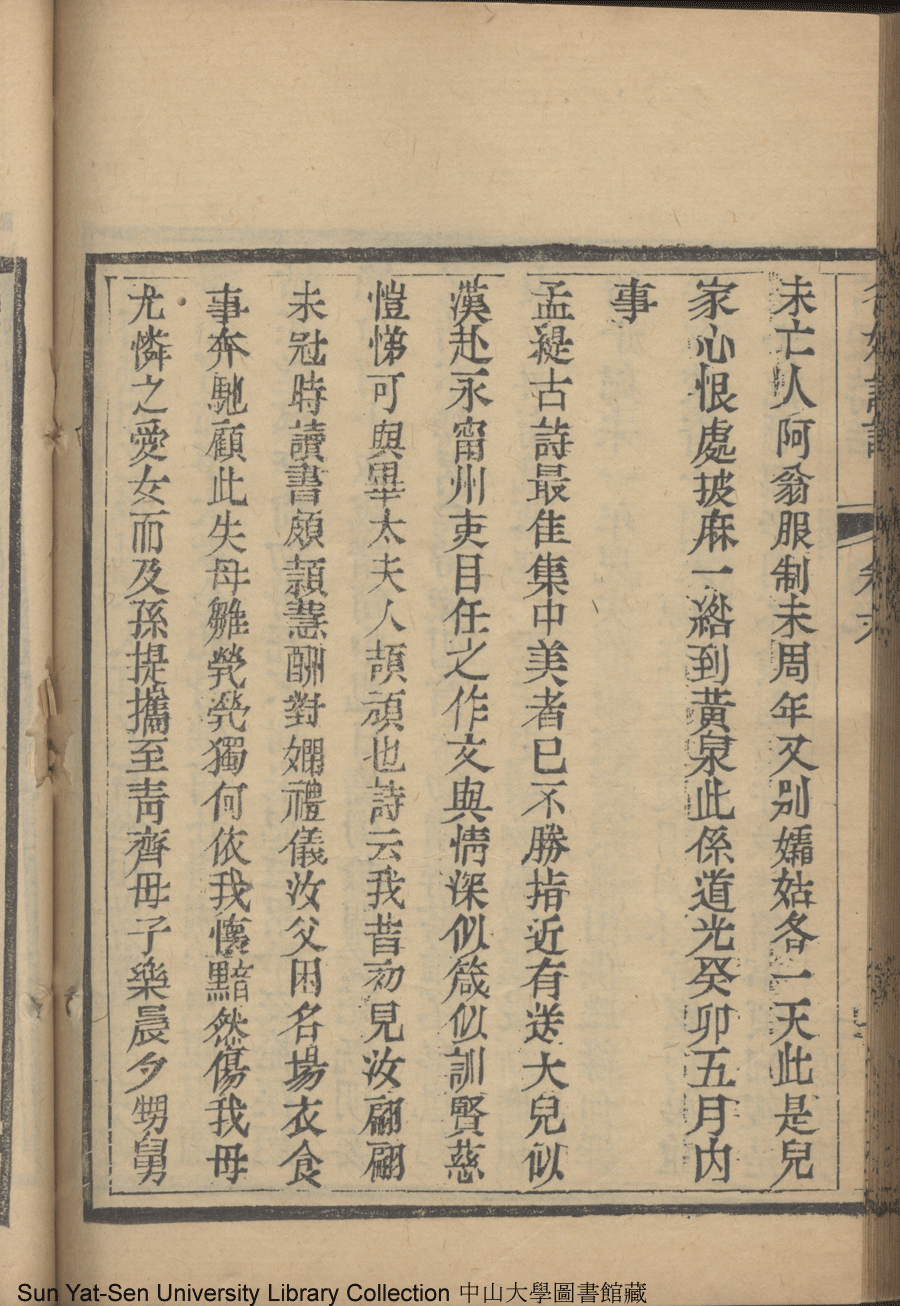 未亡人阿翁服制未周年又別孀姑各一天此是兒
家心恨處披麻一綹到黃泉此係道光癸卯五月內
事
孟緹古詩最佳集中美者已不勝指近有送大兒似
漢赴永甯州吏目任之作文與情深似箴似訓賢慈
愷悌可與畢太夫人頡頏也詩云我昔初見汝翩翩
未冠時讀書頗頴慧酬對嫻禮儀汝父困名場衣食
事奔馳顧此失母雛煢煢獨何依我懷黯然傷我母
尤憐之愛女而及孫提攜至靑齊母子樂晨夕甥舅
Sun Yat-Sen University Library Collection 中山大學圖書館藏